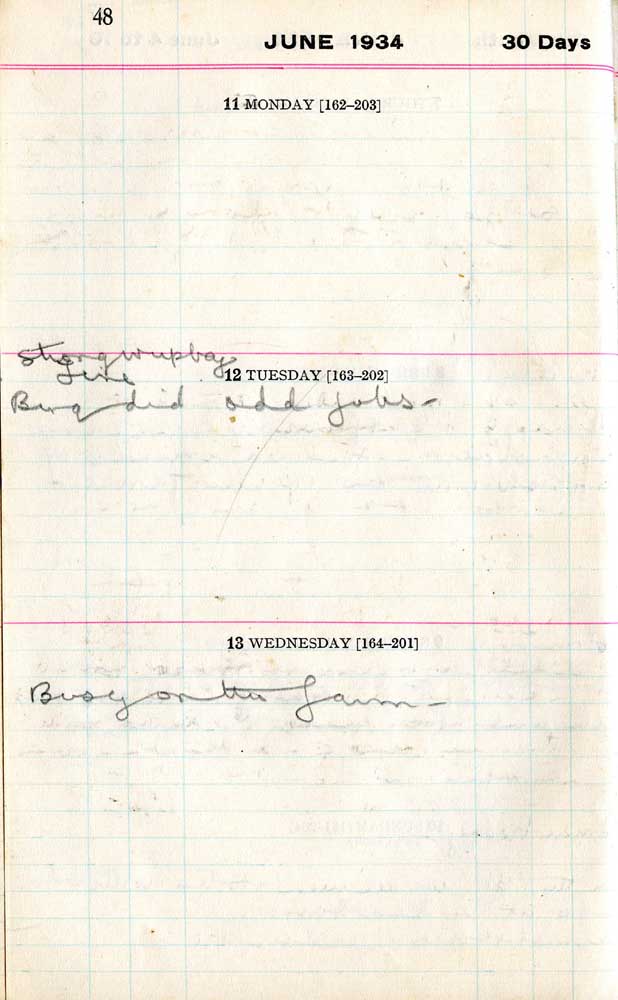 48
JUNE 1934 30 Days
11 MONDAY [162–203]
Strong
Fine
12 TUESDAY [163–202]
did odd jobs –
13 WEDNESDAY [164–201]
Busy on the farm –